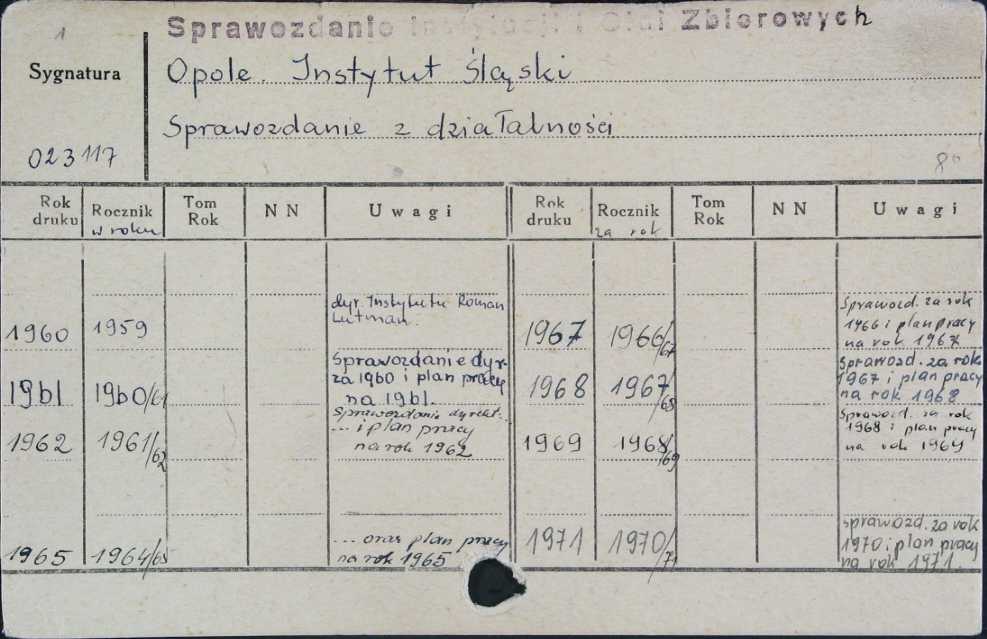 1
Sprawozdanie Instytucji i Ciał Zbiorowych
Sygnatura
Opole. Instytut Śląski
Sprawozdanie z działalności
023117
8°
Rok druku
Rocznik
w roku
Tom Rok
NN
Uwagi
Rok druku
Rocznik
za rok
Tom Rok
NN
Uwagi
1960
1959
dyr. Instytutu Roman
Lutman.
1961
1960/61
Sprawozdanie dyr.
za 1960 i plan pracy
na 1961.
1962
1961/62
Sprawozdanie dyrekt...
... i plan pracy
na rok 1962
1965
1964/65
... oraz plan pracy
na rok 1965
1967
1966/67
Sprawozd. za rok
1966 i plan pracy
na rok 1967
1968
1967/68
Sprawozd. za rok
1967 i plan pracy
na rok 1968
1969
1968/69
Sprawozd. za rok
1968 i plan pracy
na rok 1969
1971
1970/71
Sprawozd. za rok
1970 i plan pracy
na rok 1971.